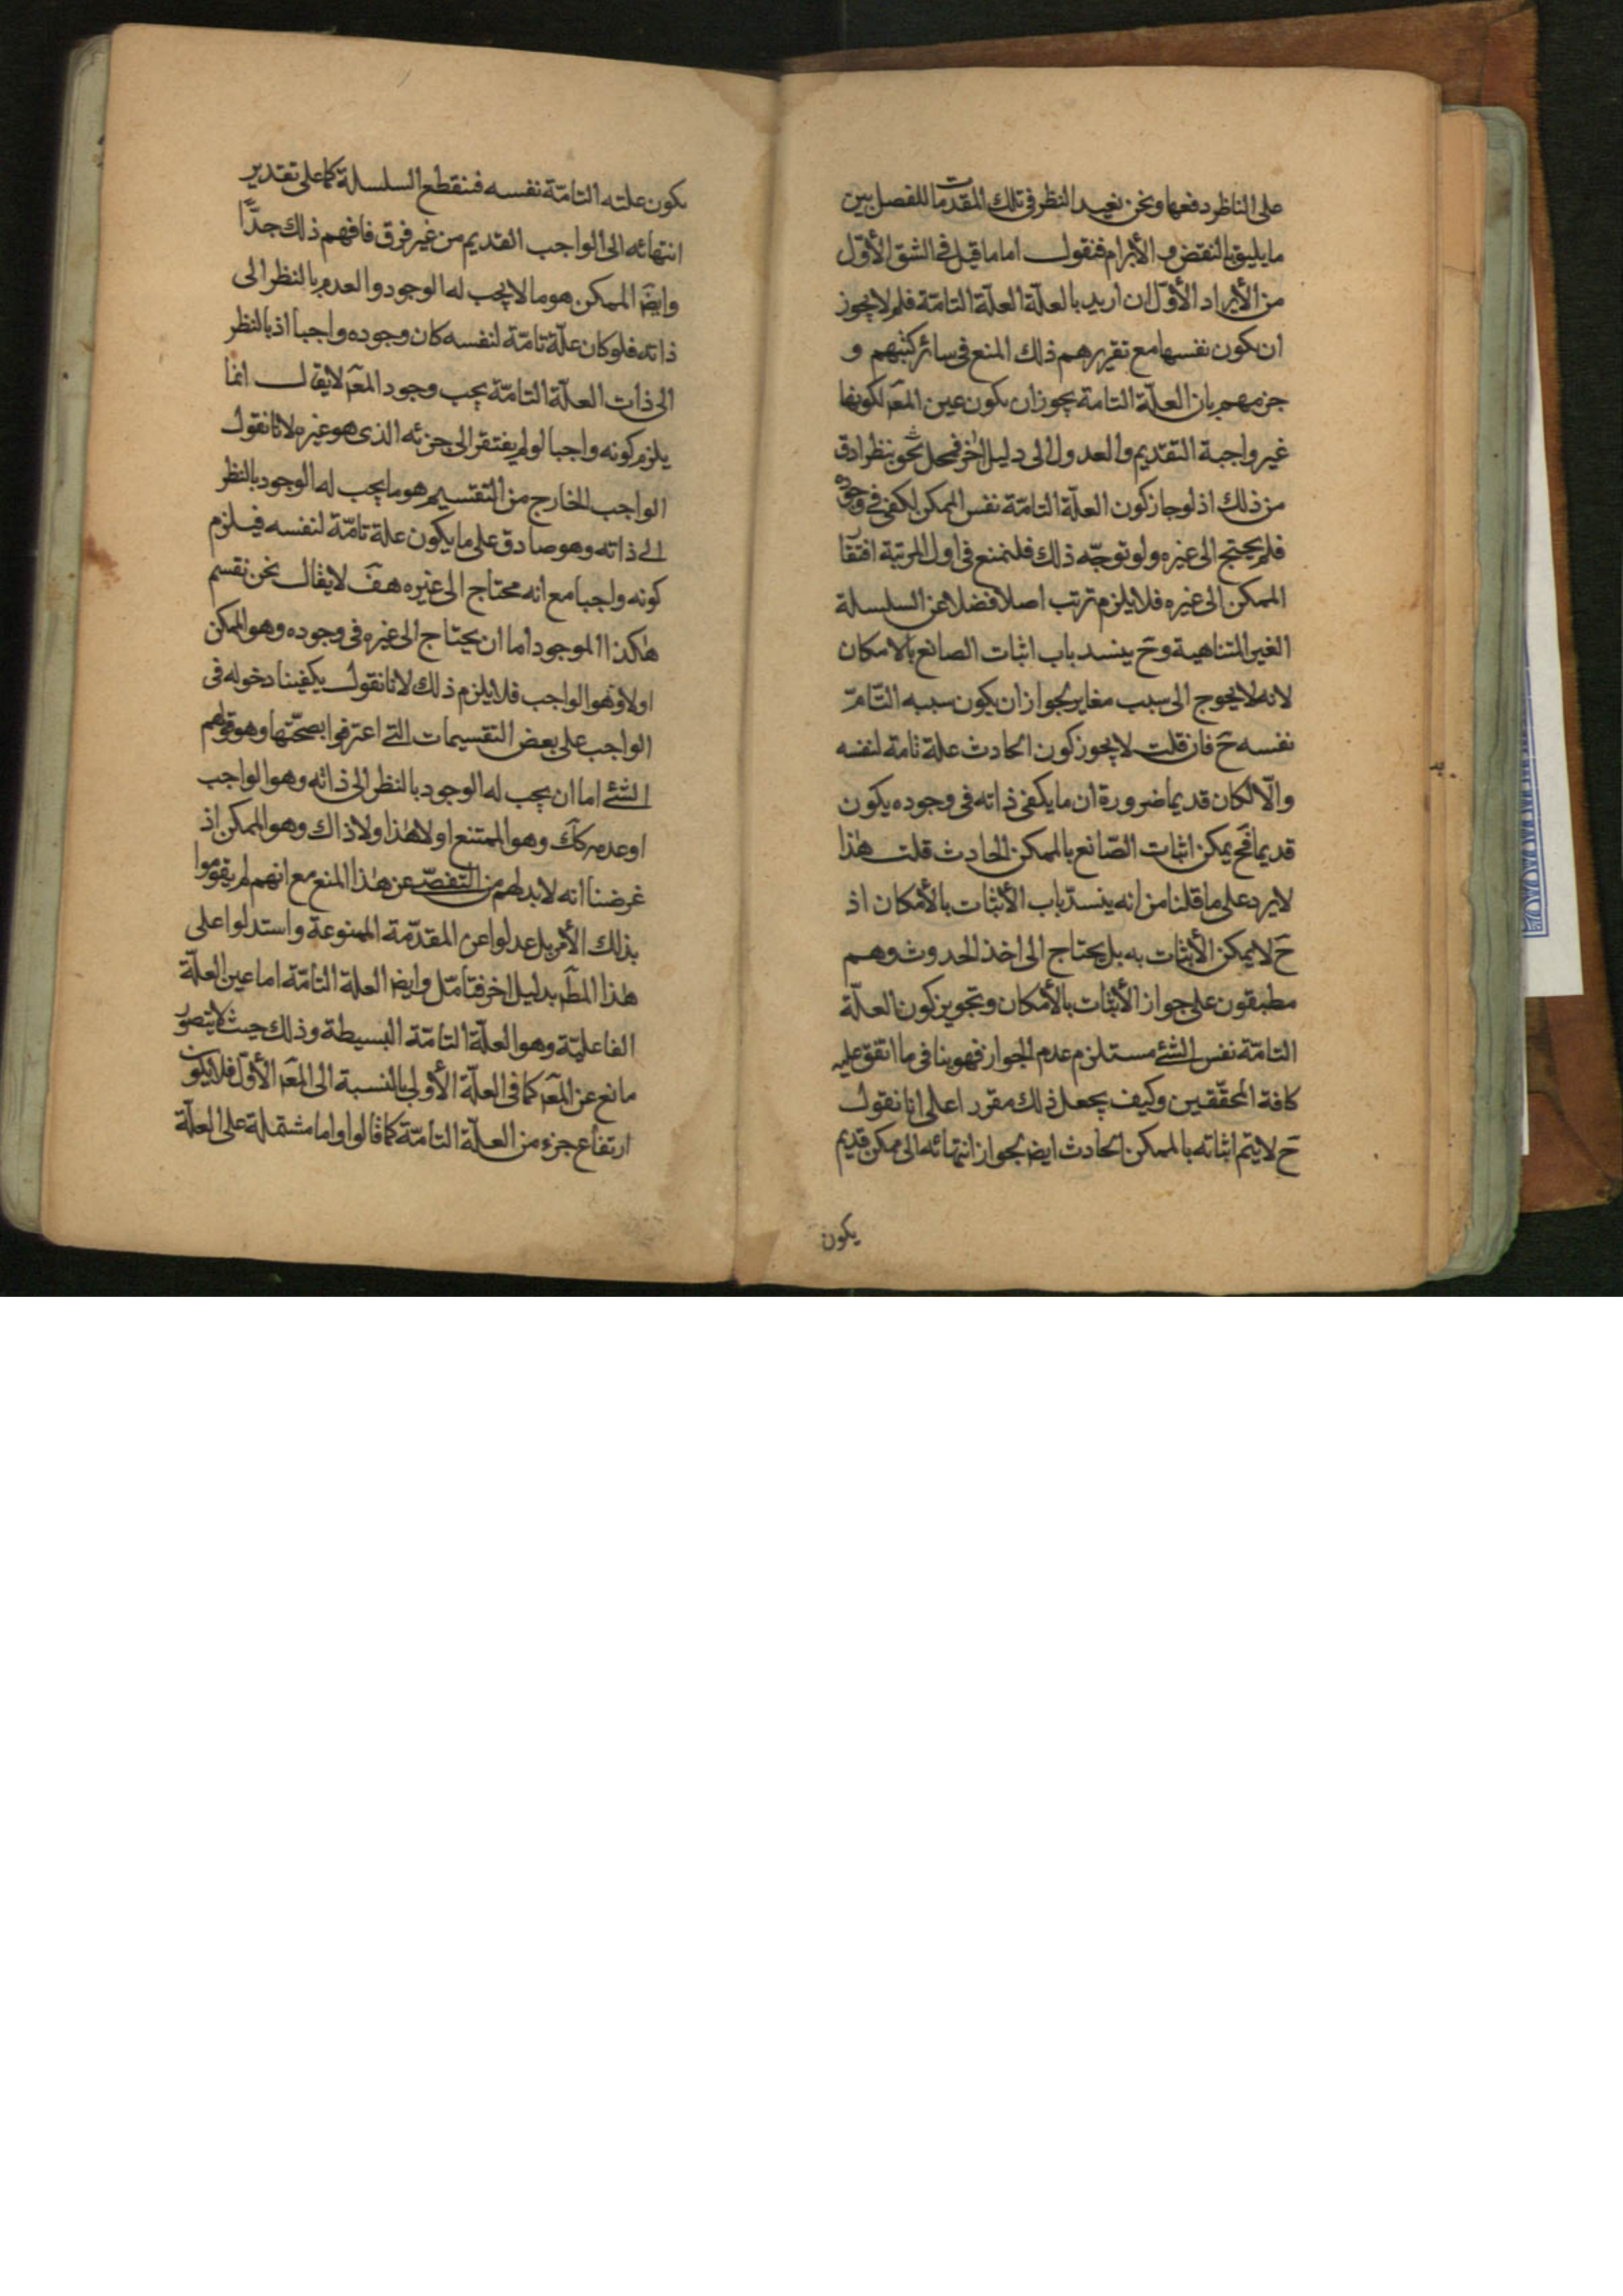 على الناظر دفعها ونحن نعيد النظر فى تلك المقدمات للفصل بين
ما يليق بالنقض و الأبرام فنقول اما ما قيل فى الشق الأوّل
من الأيراد الأوّل ان اريد بالعلّة العلّة التامّة فلم لا يجوز
ان يكون نفسها مع تقريرهم ذلك المنع فى سائر كتبهم و
جزمهم بان العلّة التامة يجوز ان يكون عين المعَم لكونها
غير واجبة التقديم والعدول الى دليل اخر فمحل بحث بنظر ادق
من ذلك اذ لو جاز كون العلّة التامّة نفس الممكن لكفى فى وجوده
فلم يحتج الى غيره ولو توجّه ذلك فلنمنع فى اول المرتبة افتقار
الممكن الى غيره فلا يلزم ترتب اصلا فضلا عن السلسلة
الغير المتناهية وحَ ينسد باب اثبات الصانع بالامكان
لانه لا يحوج الى سبب مغاير لجواز ان يكون سببه التّامّ
نفسه حَ فان قلت لا يجوز كون الحادث علة تامة لنفسه
والّا لكان قديما ضرورة ان ما يكفى ذاته فى وجوده يكون
قديما فحَ يمكن اثبات الصّانع بالممكن الحادث قلت هٰذا
لا يرد على ما قلنا من انه ينسدّ باب الأثبات بالأمكان اذ
حَ لا يمكن الأثبات به بل يحتاج الى اخذ الحدوث وهم
مطبقون على جواز الأثبات بالأمكان وتجويز كون العلّة
التامّة نفس الشئ مستلزم عدم الجواز فهو ينافى ما اتفق عليه
كافة المحقّقين وكيف يجعل ذلك مقررا على انا نقول
حَ لا يتم اثباته بالممكن الحادث ايضا لجواز انتهائه الى ممكن قديم
يكون
يكون علته التامّة نفسه فنقطع السلسلة كما على تقدير
انتهائه الى الواجب القديم من غير فرق فافهم ذلك جدًّا
وايضَ الممكن هو ما لا يجب له الوجود والعدم بالنظر الى
ذاته فلو كان علّة تامّة لنفسه كان وجوده واجبا اذ بالنظر
الى ذات العلّة التامّة يجب وجود المعَم لا يقال انما
يلزم كونه واجبا لو لم يفتقر الى جزئه الذى هو غيره لانا نقول
الواجب الخارج من التقسيم هو ما يجب له الوجود بالنظر
الى ذاته وهو صادق على ما يكون علة تامّة لنفسه فيلزم
كونه واجبا مع انه محتاج الى غيره هفَ لا يقال نحن نقسم
هٰكذا الموجود اما ان يحتاج الى غيره فى وجوده وهو الممكن
اولا وهو الواجب فلا يلزم ذلك لانا نقول يكفينا دخوله فى
الواجب على بعض التقسيمات التى اعترفوا بصحّتها وهو قولهم
الشئ اما ان يجب له الوجود بالنظر الى ذاته وهو الواجب
او عدمه ككَ وهو الممتنع اولا هٰذا ولا ذاك وهو الممكن اذ
غرضنا انه لا بد لهم من التفصّى عن هٰذا المنع مع انهم لم يقوموا
بذلك الأمر بل عدلوا عن المقدّمة الممنوعة واستدلوا على
هٰذا المطَم بدليل اخر فتامّل وايضَ العلة التامّة اما عين العلّة
الفاعليّة وهو العلّة التامّة البسيطة وذلك حيث لا يتصوّر
مانع عن المعَم كما فى العلّة الأولى بالنسبة الى المعَم الأوّل فلا يكون
ارتفاع جزء من العلّة التامّة كما قالوا واما مشتملة على العلّة